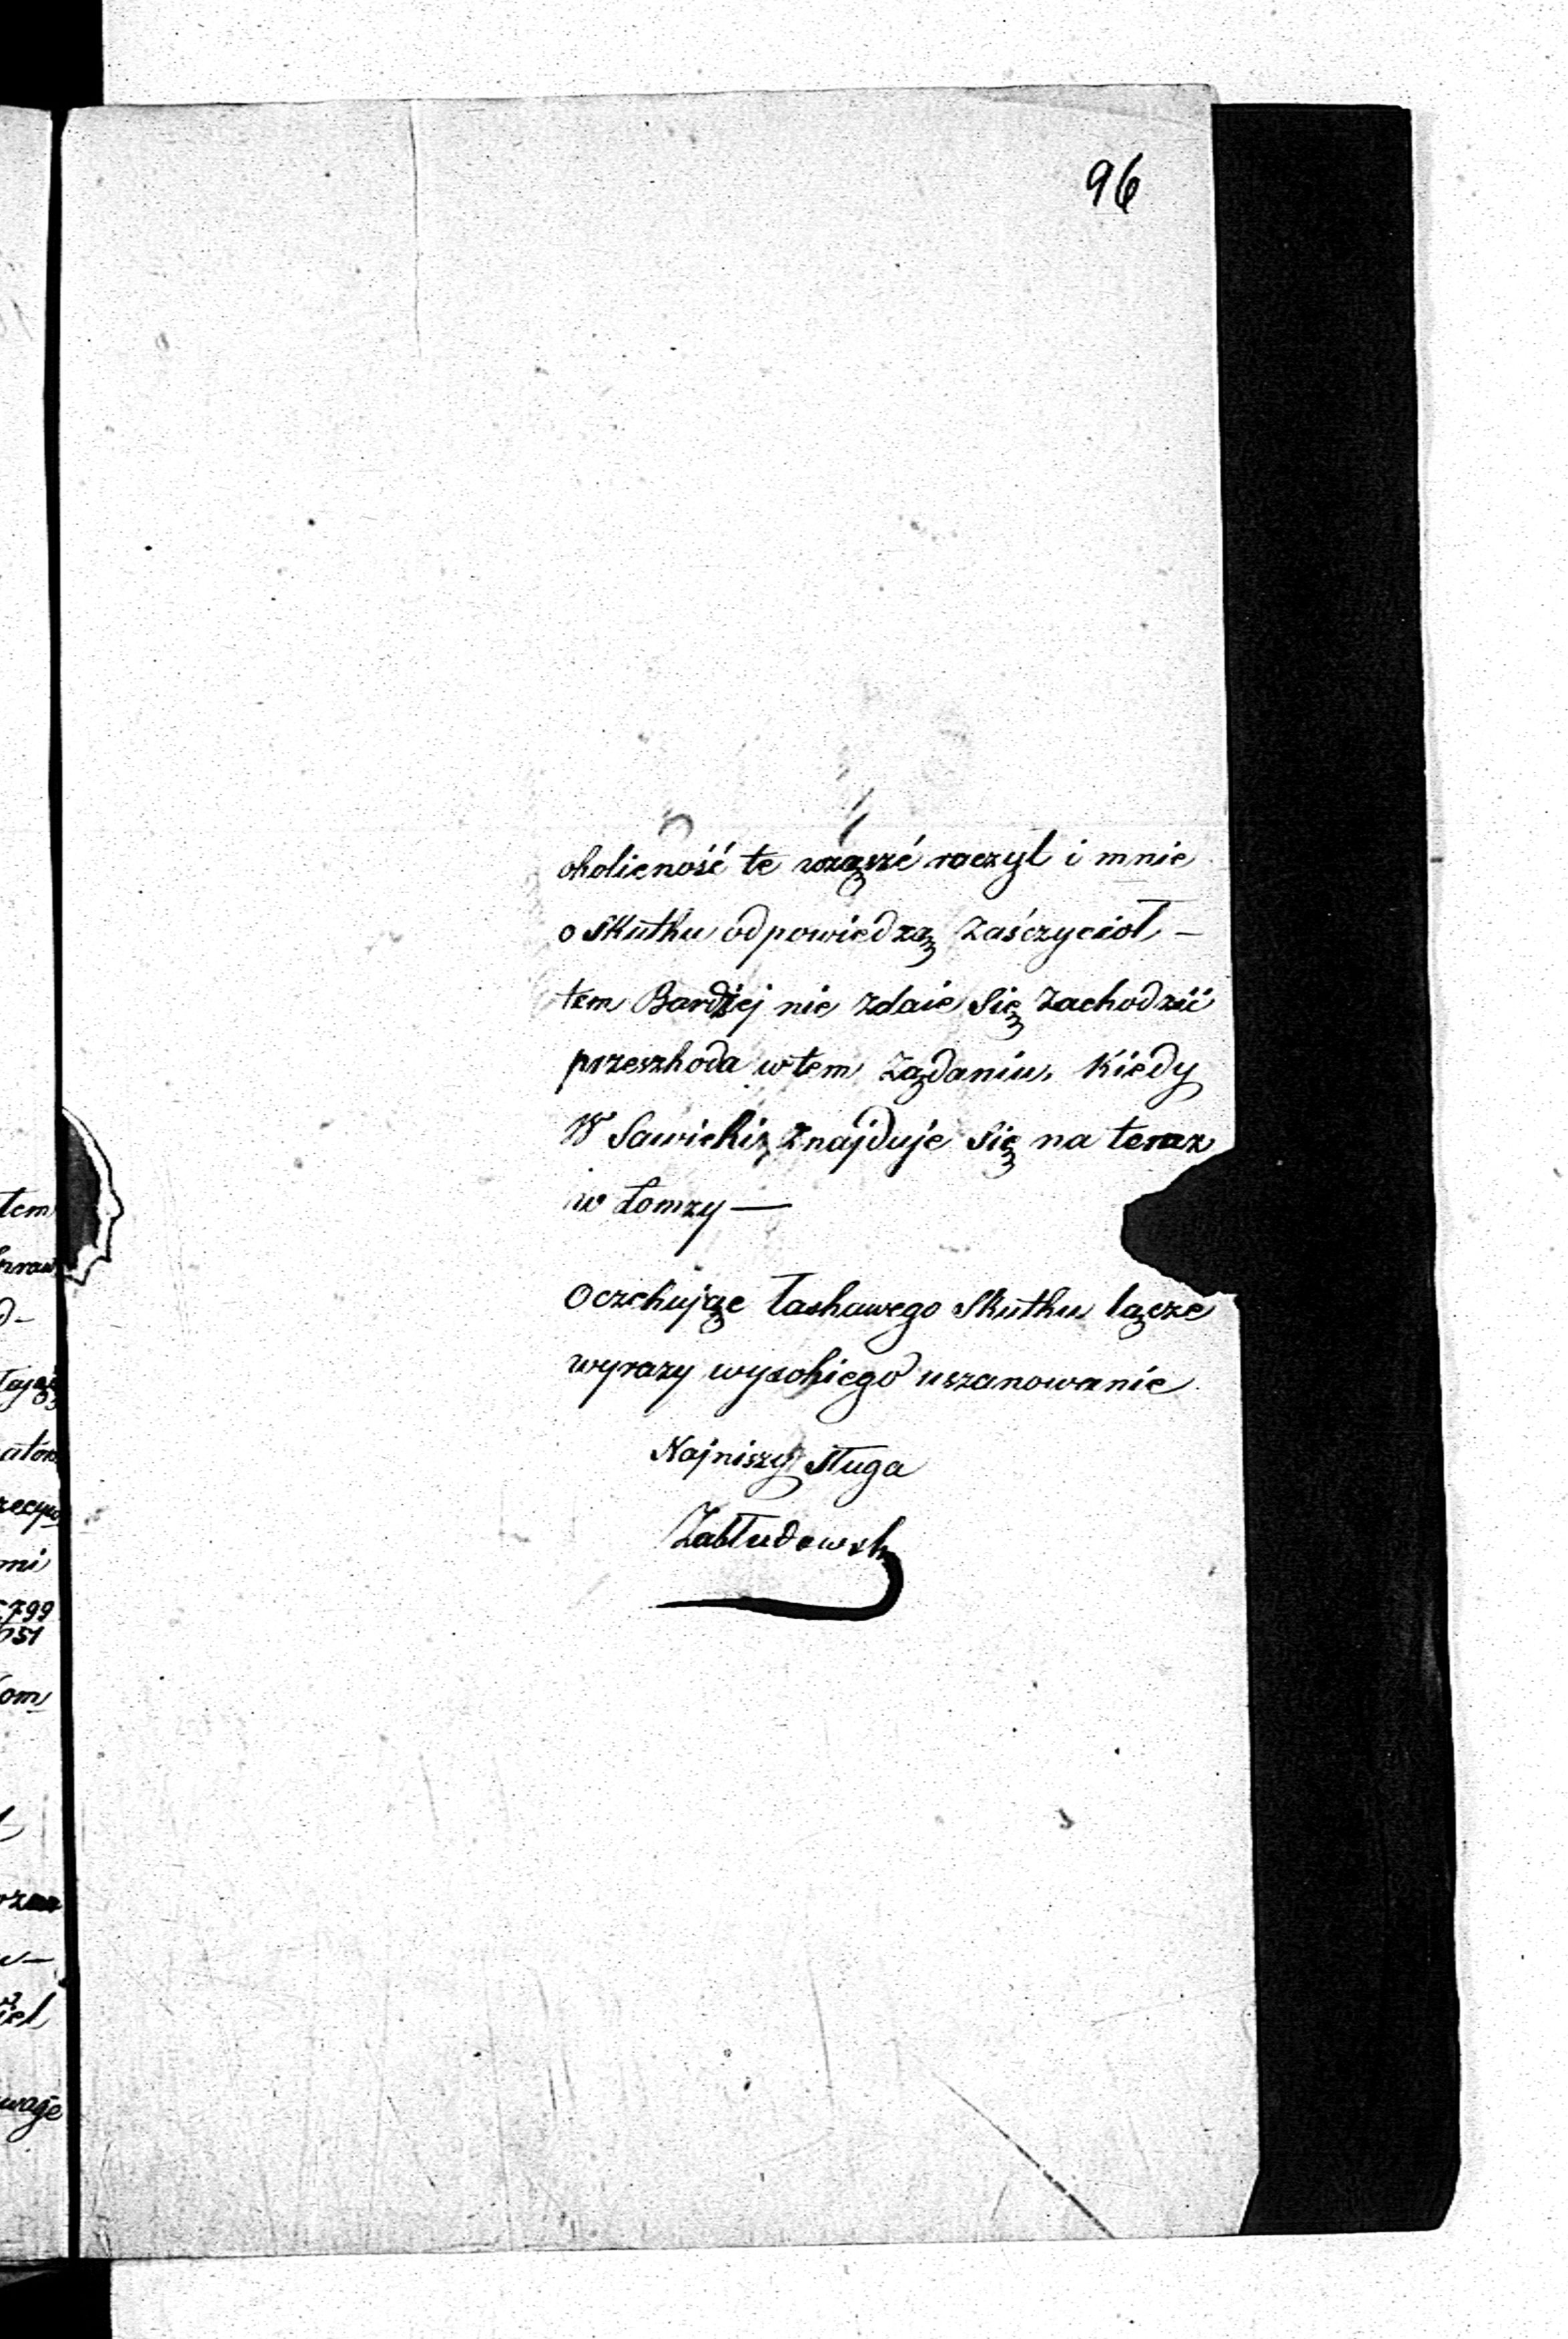 96
okolicność te wziąść raczyl i mnie
o Skutku odpowiedzą Zaśczyciół —
tem Bardziej nie zdaie Się Zachodzić
przeszkoda w tem Ządaniu, Kiedy
W Sawicki Znajduje Się na teraz
w Łomzy —
Oczekując Łaskawego Skutku łącze
wyrazy wysokiego uszanowanie
Najniszy Sługa
Zabłudowsk
tem
praw
d-
łają
ałów
mi
799
051
om
waje